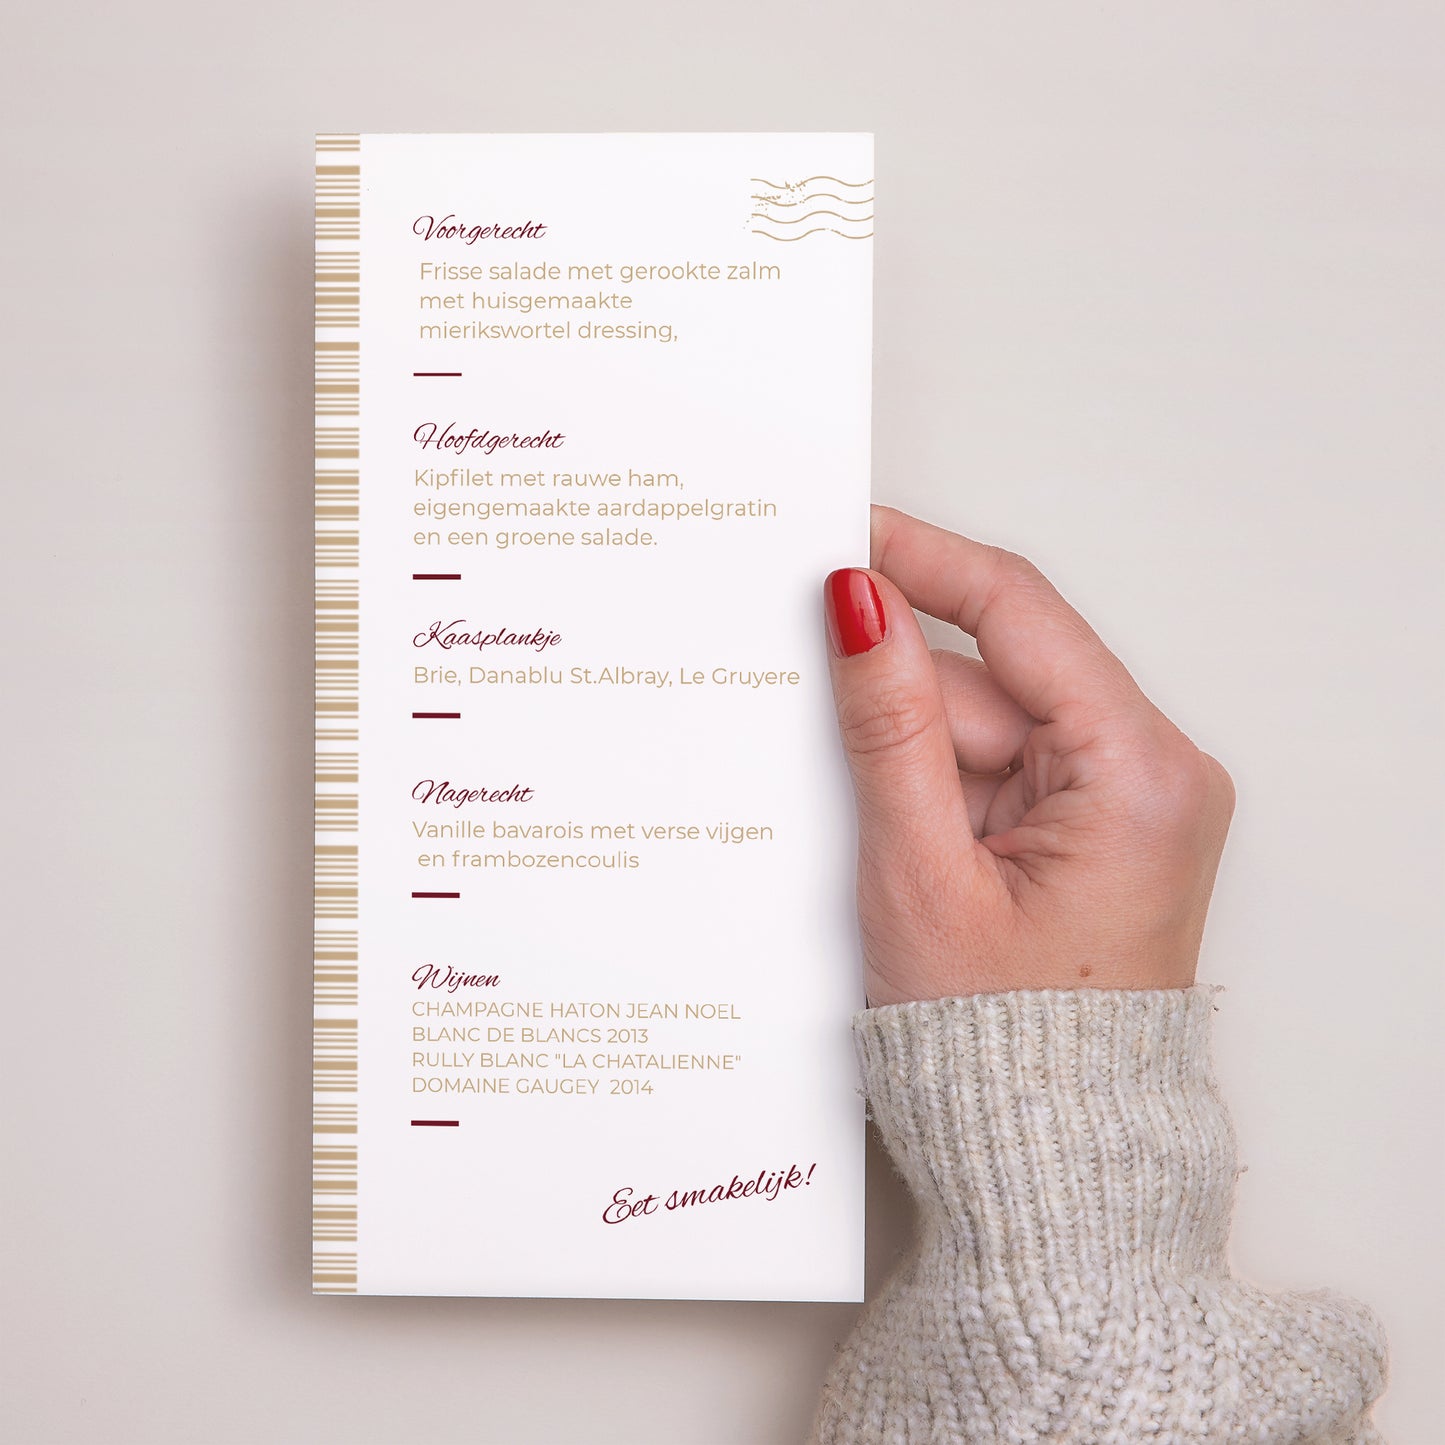 Voorgerecht
Frisse salade met gerookte zalm
met huisgemaakte
mierikswortel dressing,
Hoofdgerecht
Kipfilet met rauwe ham,
eigengemaakte aardappelgratin
en een groene salade.
Kaasplankje
Brie, Danablu St.Albray, Le Gruyere
Nagerecht
Vanille bavarois met verse vijgen
en frambozencoulis
Wijnen
CHAMPAGNE HATON JEAN NOEL
BLANC DE BLANCS 2013
RULLY BLANC "LA CHATALIENNE"
DOMAINE GAUGEY 2014
Eet smakelijk!